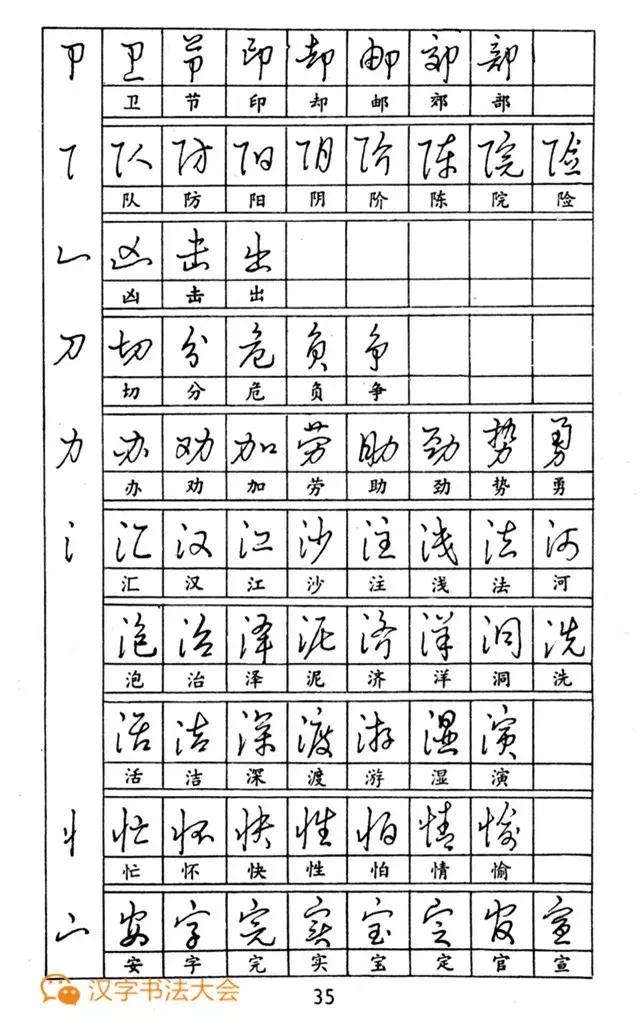 卩 卫 节 印 却 邮 郊 部
卫 节 印 却 邮 郊 部
阝 队 防 阳 阴 阶 陈 院 险
队 防 阳 阴 阶 陈 院 险
凵 凶 击 出
凶 击 出
刀 切 分 危 负 争
切 分 危 负 争
力 办 劝 加 劳 助 劲 势 勇
办 劝 加 劳 助 劲 势 勇
氵 汇 汉 江 沙 注 浅 法 河
汇 汉 江 沙 注 浅 法 河
泡 治 泽 泥 济 洋 洞 洗
泡 治 泽 泥 济 洋 洞 洗
活 洁 深 渡 游 湿 演
活 洁 深 渡 游 湿 演
忄 忙 怀 快 性 怕 情 愉
忙 怀 快 性 怕 情 愉
宀 安 字 完 实 宝 定 官 宣
安 字 完 实 宝 定 官 宣
汉字书法大会
35